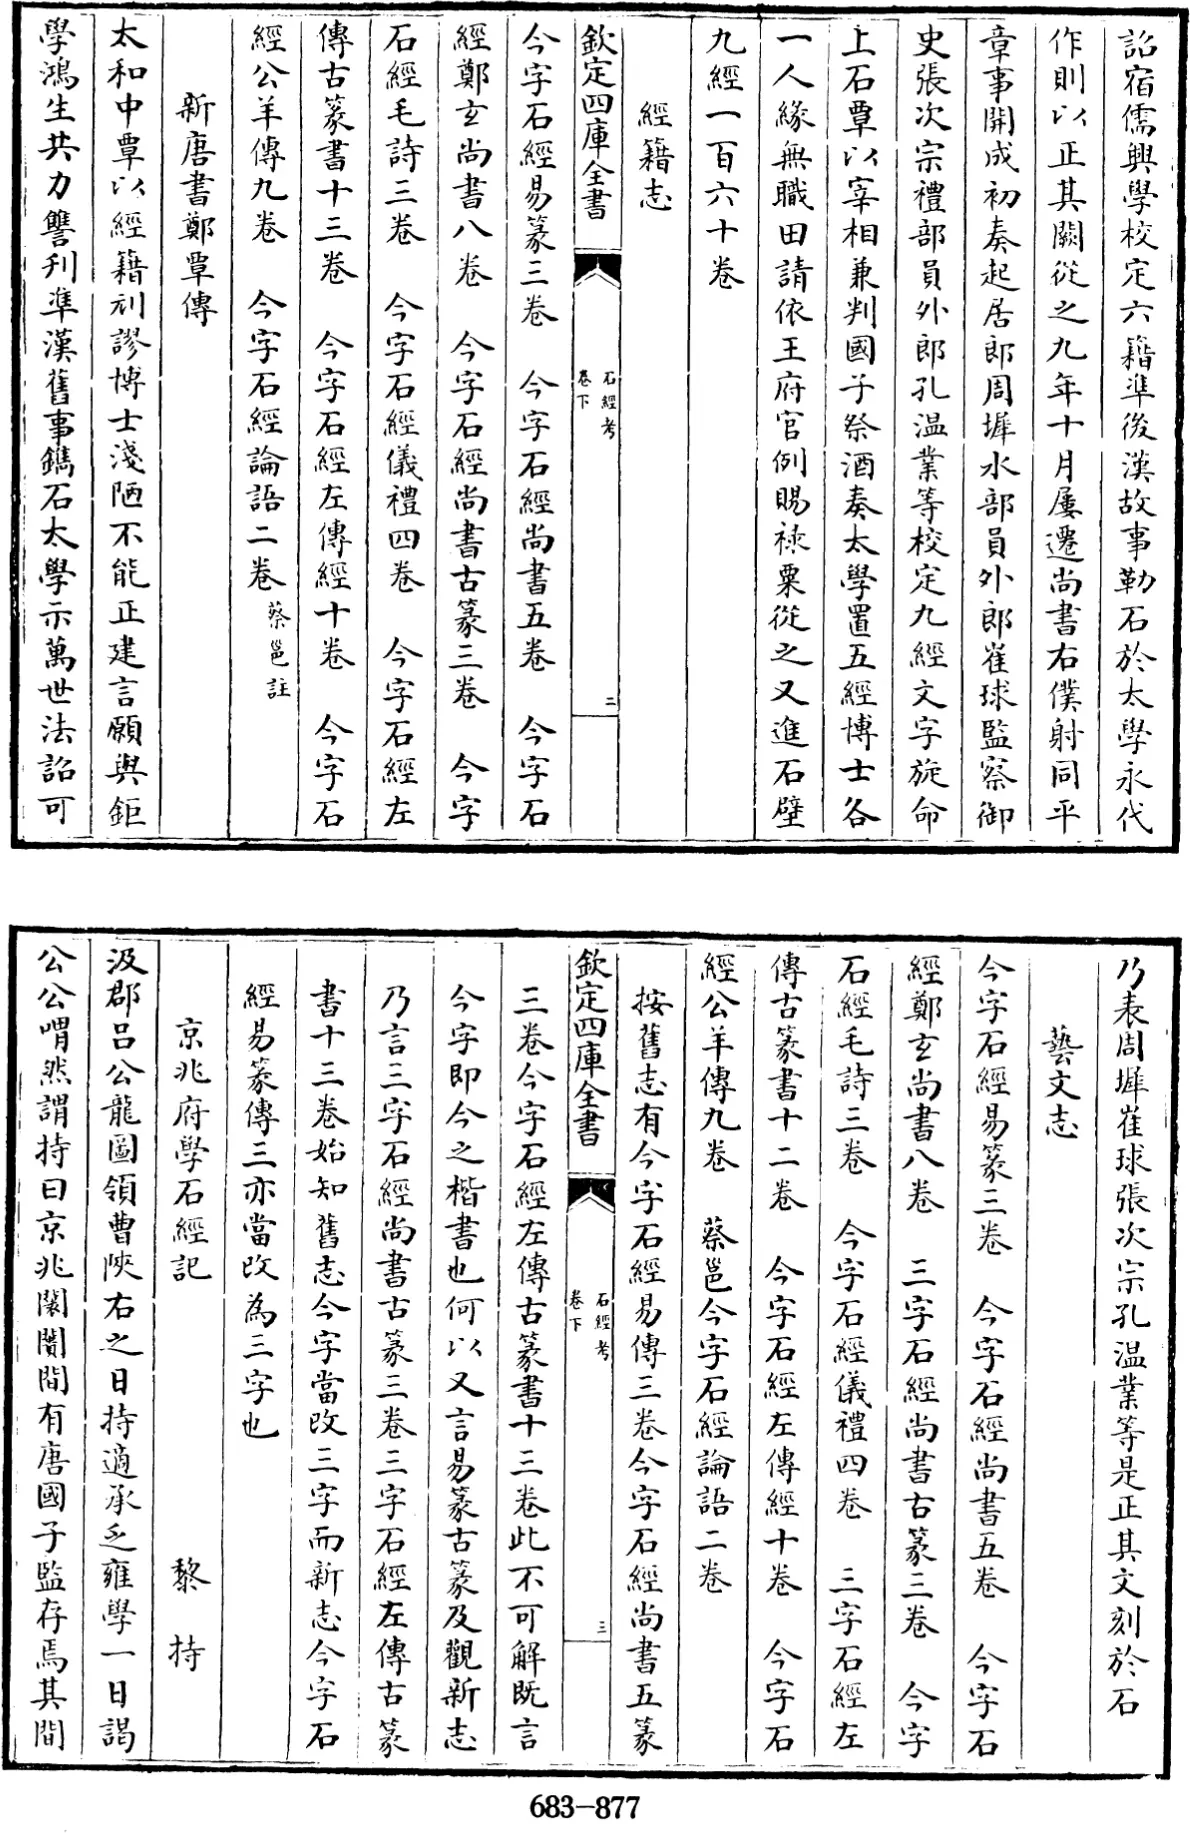 詔宿儒興學校定六籍準後漢故事勒石於太學永代
作則以正其闕從之九年十月屢遷尚書右僕射同平
章事開成初奏起居郎周墀水部員外郎崔球監察御
史張次宗禮部員外郎孔温業等校定九經文字旋命
上石覃以宰相兼判國子祭酒奏太學置五經博士各
一人緣無職田請依王府官例賜禄粟從之又進石壁
九經一百六十卷
經籍志
欽定四庫全書
石經考
卷下
二
今字石經易篆三卷　今字石經尚書五卷　今字石
經鄭玄尚書八卷　今字石經尚書古篆三卷　今字
石經毛詩三卷　今字石經儀禮四卷　今字石經左
傳古篆書十三卷　今字石經左傳經十卷　今字石
經公羊傳九卷　今字石經論語二卷蔡邕註
新唐書鄭覃傳
太和中覃以經籍刓謬博士淺陋不能正建言願與鉅
學鴻生共力讐刊準漢舊事鐫石太學示萬世法詔可
乃表周墀崔球張次宗孔温業等是正其文刻於石
藝文志
今字石經易篆三卷　今字石經尚書五卷　今字石
經鄭玄尚書八卷　三字石經尚書古篆三卷　今字
石經毛詩三卷　今字石經儀禮四卷　三字石經左
傳古篆書十二卷　今字石經左傳經十卷　今字石
經公羊傳九卷　蔡邕今字石經論語二卷
按舊志有今字石經易傳三卷今字石經尚書五篆
欽定四庫全書
石經考
卷下
三
三卷今字石經左傳古篆書十三卷此不可解既言
今字即今之楷書也何以又言易篆古篆及觀新志
乃言三字石經尚書古篆三卷三字石經左傳古篆
書十三卷始知舊志今字當改三字而新志今字石
經易篆傳三亦當改為三字也
京兆府學石經記　黎　持
汲郡吕公龍圖領曹陝右之日持適承乏雍學一日謁
公公喟然謂持曰京兆闤闠間有唐國子監存焉其間
683-877